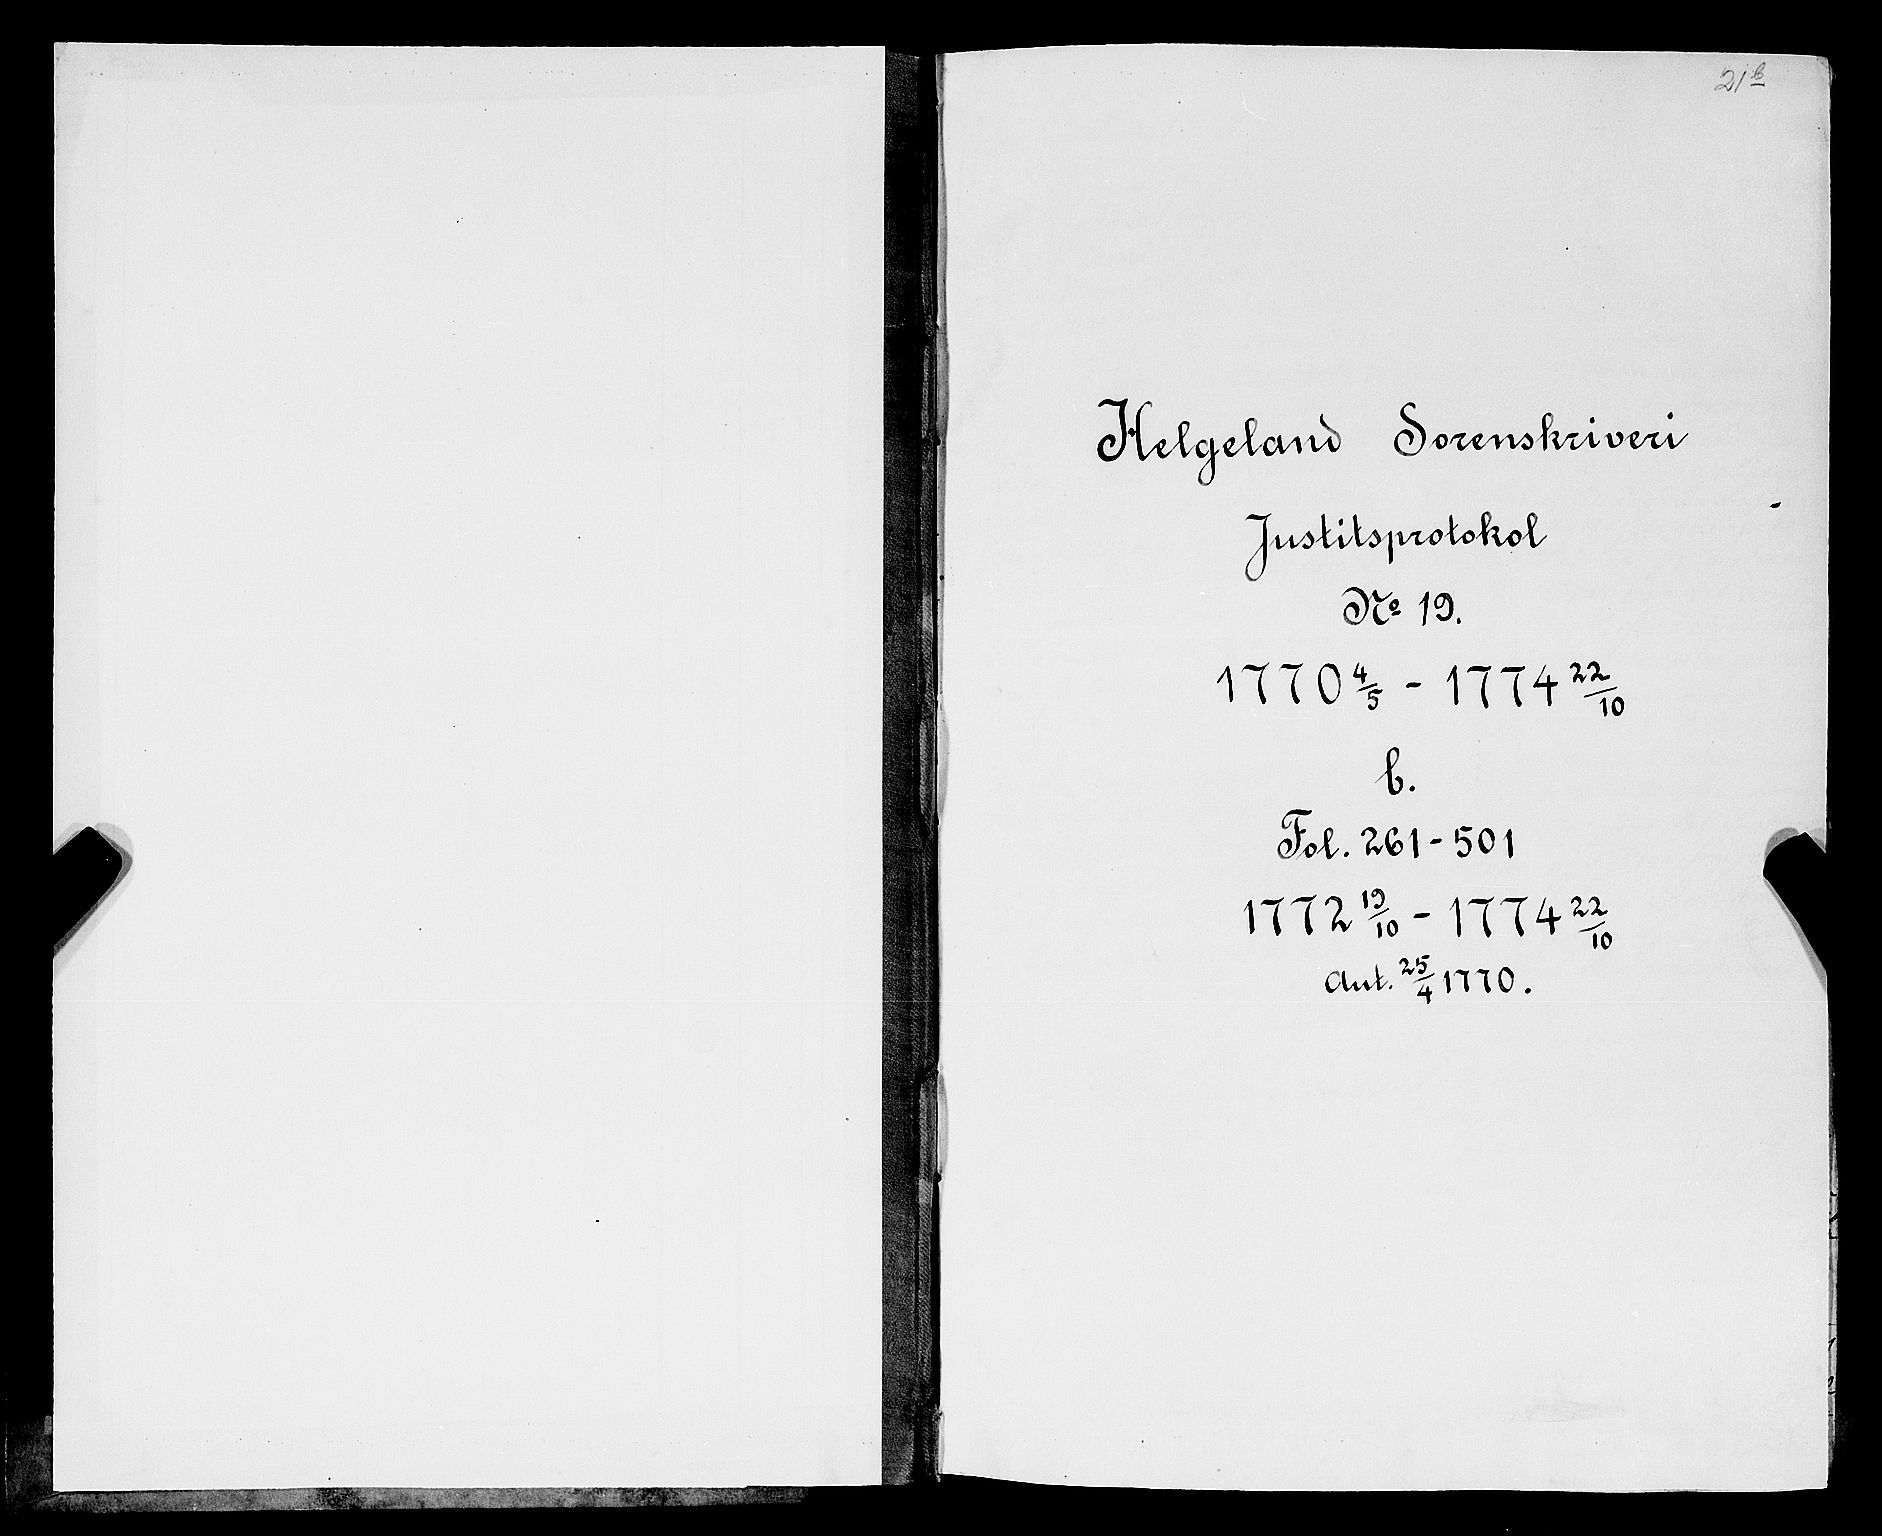 21 b
Helgeland Sorenskriveri
Justitsprotokol
№ 19.
1770 4/5 - 1774 22/10
b.
Fol. 261-501
1772 19/10 - 1774 22/10
Aut. 25/4 1770.